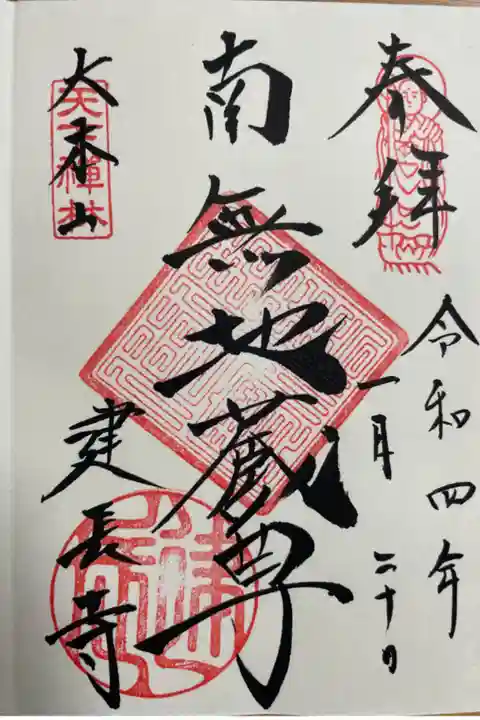 奉拝
令和四年
一月二十日
南無地蔵尊
大本山
天下禪林
建長寺